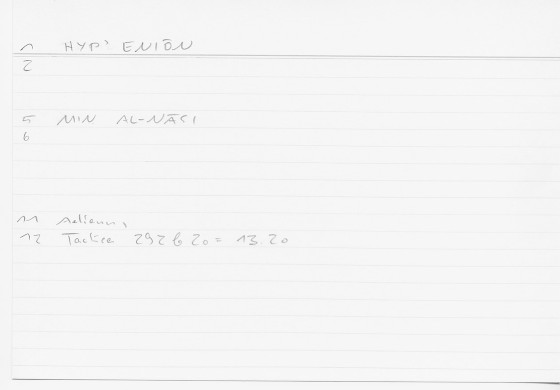 1 HYP' ENIŌN
2
5 MIN AL-NĀSI
6
11 Aelianus,
12 Tactica 292 b 20 = 13.20